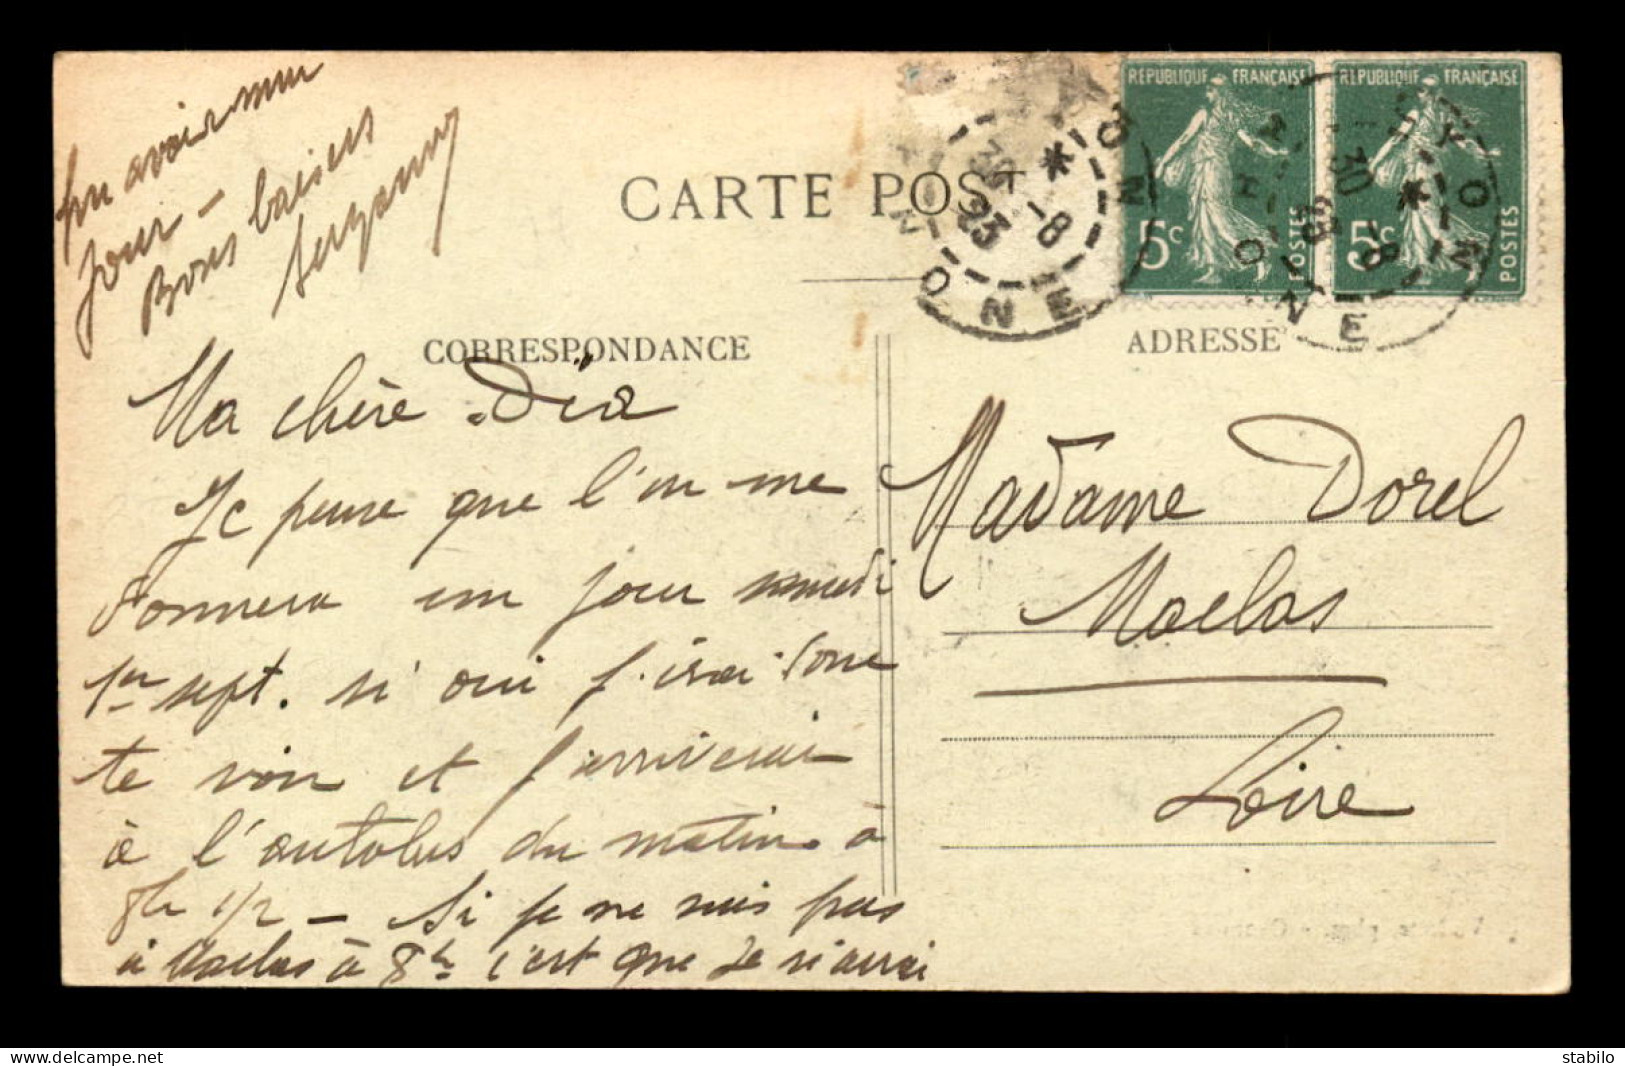 CARTE POST
CORRESPONDANCE
ADRESSE
REPUBLIQUE FRANÇAISE
5c
POSTES
REPUBLIQUE FRANÇAISE
5c
POSTES
30 -8
23
RHONE
30 -8
23
RHONE
Ma chère Déa
Je pense que l'on me
donnera un jour samedi
1er sept. si oui j'irai donc
te voir et j'arriverai
à l'autobus du matin à
8h 1/2 – Si je ne suis pas
à Maclas à 8h c'est que je n'aurai
pu avoir mon
jour –
Bons baisers
Madame Dorel
Maclas
Loire
stabilo
www.delcampe.net